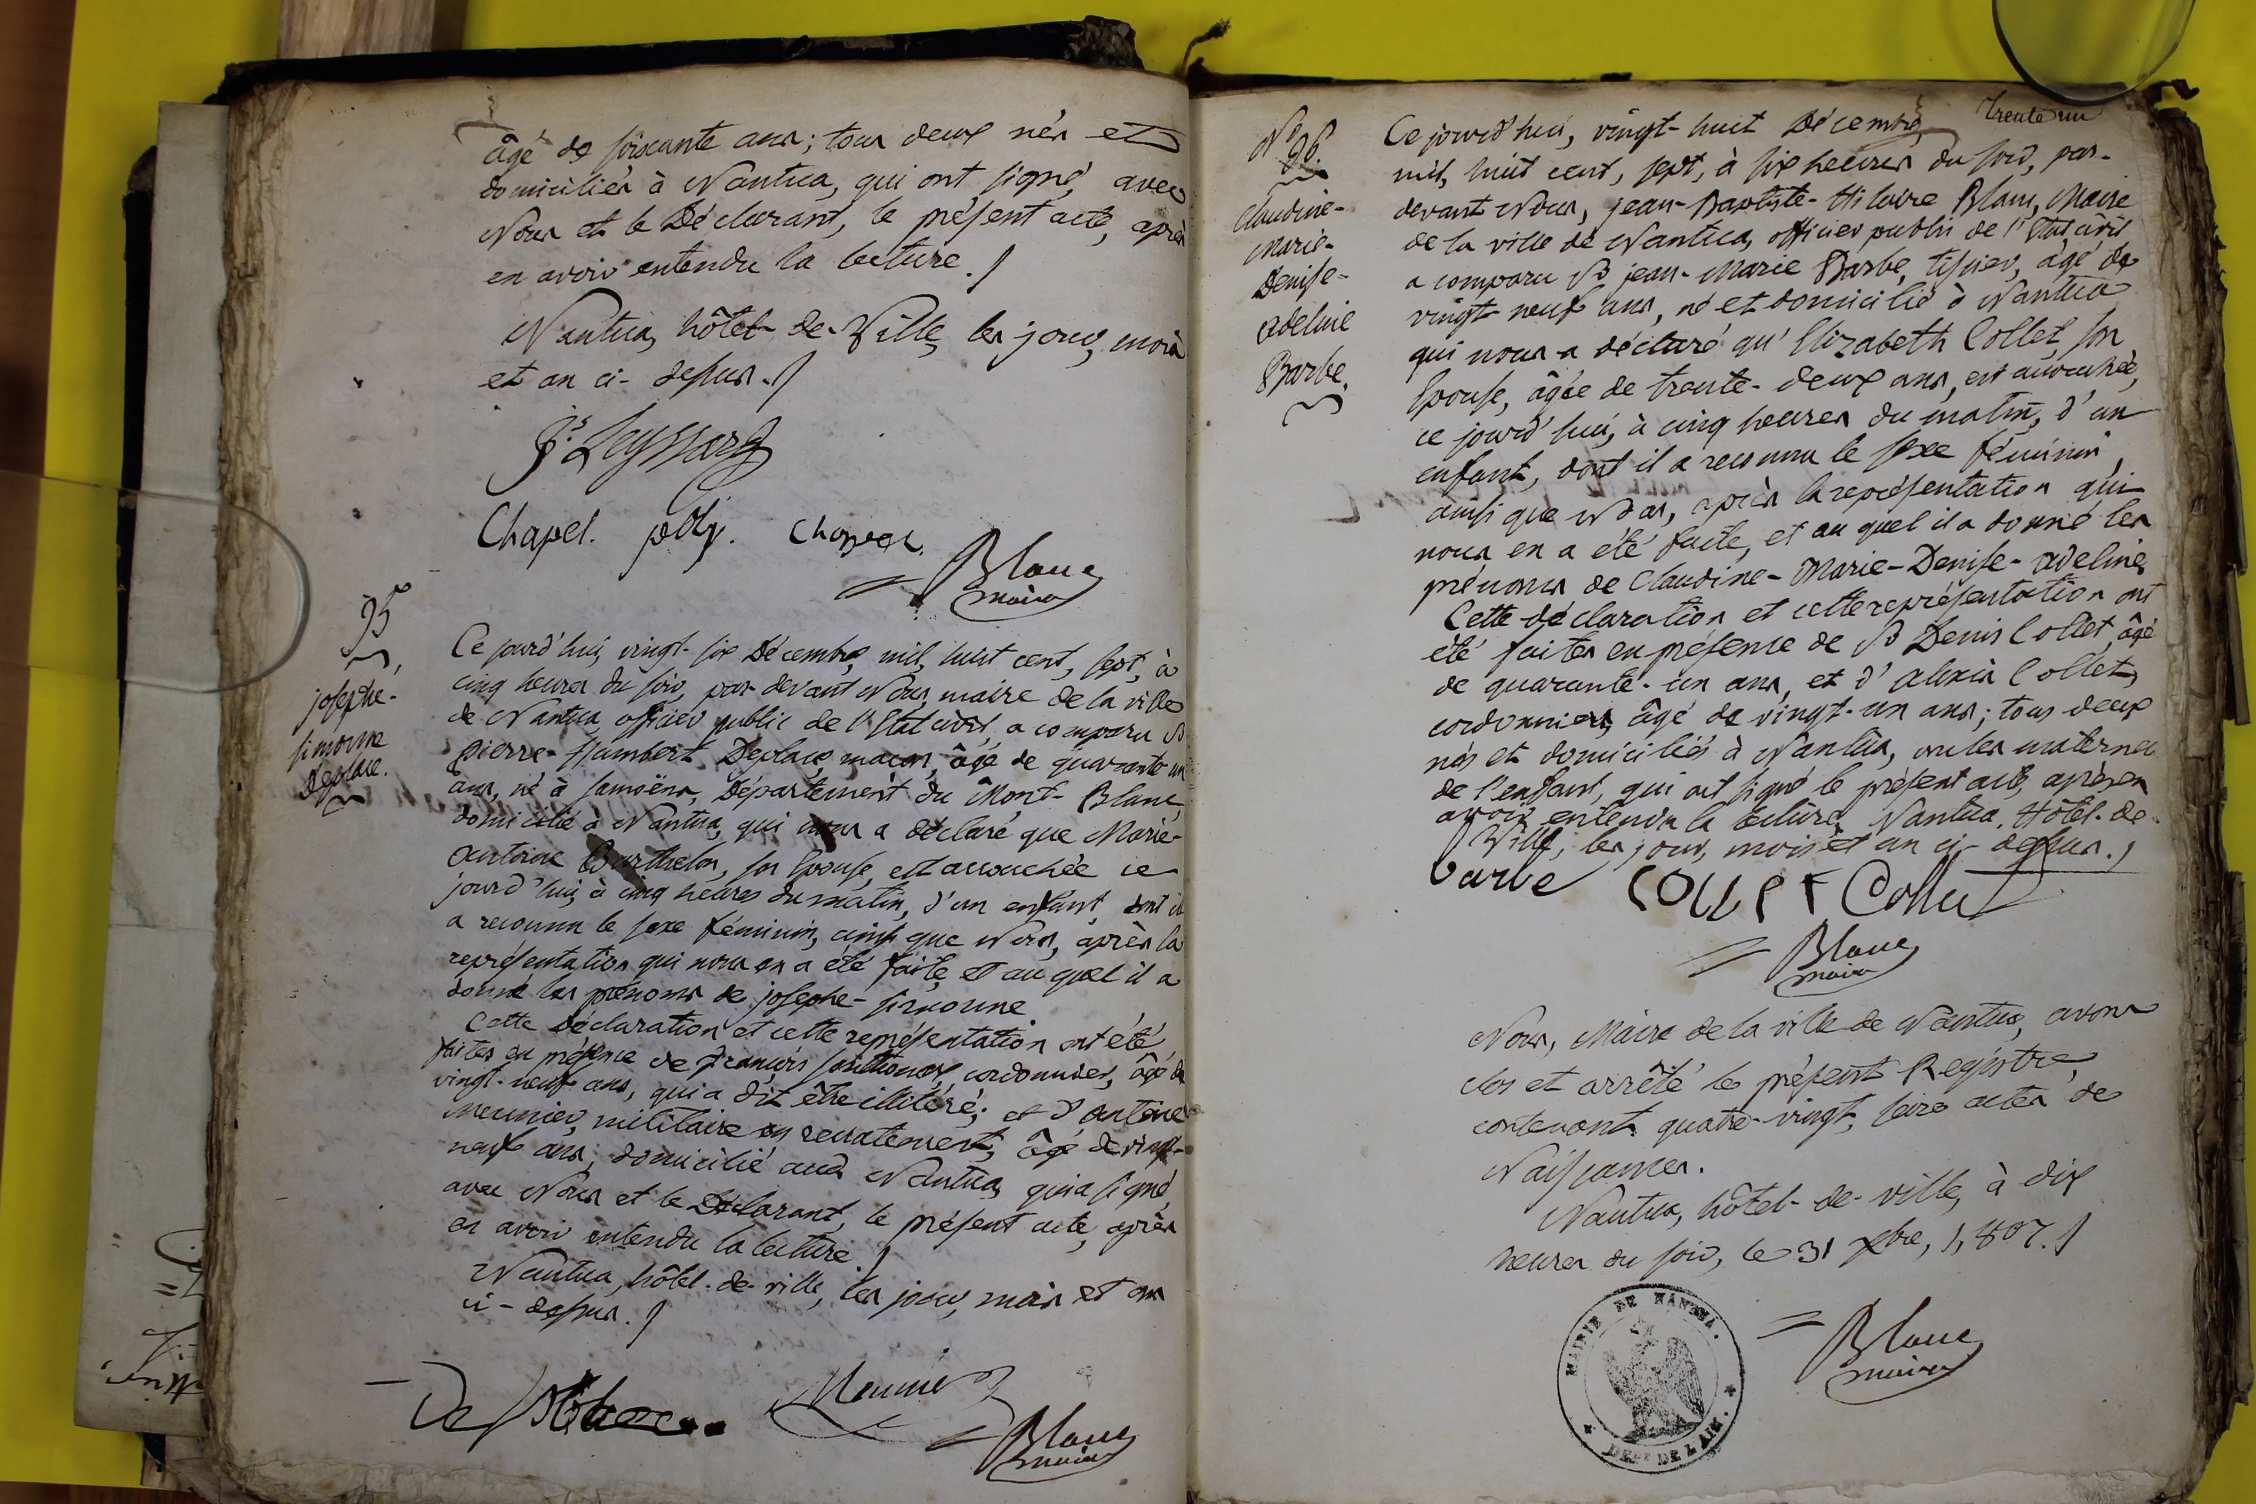 âgé de soixante ans; tous deux nés et
domiciliés à Nantua, qui ont signé, avec
Nous et le Déclarant, le présent acte, après
en avoir entendu la lecture.
Nantua, hôtel-de-Ville, les jour, mois
et an ci-dessus.
Chapel. poly.
Blanc
maire
95
josephe-
simonne
Deplace.
Ce jourd'hui, vingt-six Décembre, mil, huit cent, sept, à
cinq heures du soir, par-devant Nous, maire de la ville
de Nantua officier public de l'État civil, a comparu Sr
pierre-humbert Deplace, maçon, âgé de quarante un
ans, né à Samoëns, Département du Mont-Blanc,
domicilié à Nantua, qui nous a déclaré que Marie-
antoine Burthelon, son Épouse, est accouchée ce
jourd'hui, à cinq heures du matin, d'un enfant, dont il
a reconnu le sexe féminin, ainsi que Nous, après la
représentation qui nous en a été faite, et au quel il a
donné les prénoms de josephe-simonne
Cette Déclaration et cette représentation ont été
faites en présence de françois cordonnier, âgé de
vingt-neuf ans, qui a dit être illitéré; et d'antoine
Meunier, militaire en recrutement, âgé de vingt-
neuf ans, domicilié aud. Nantua, qui a signé,
avec Nous et le Déclarant, le présent acte, après
en avoir entendu la lecture.
Nantua, hôtel-de-ville, les jour, mois et an
ci-dessus.
Meunier
Blanc
maire
trente un
No 96.
Claudine-
Marie-
Denise-
adeline
Barbe.
Ce jourd'hui, vingt-huit Décembre,
mil, huit cent, sept, à six heures du soir, par-
devant Nous, jean-Baptiste-Hilaire Blanc, Maire
de la ville de Nantua, officier public de l'État civil
a comparu Sr jean-Marie Barbe, tissier, âgé de
vingt-neuf ans, né et domicilié à Nantua
qui nous a déclaré qu'Elizabeth Collet, son
Épouse, âgée de trente-deux ans, est accouchée,
ce jourd'hui, à cinq heures du matin, d'un
enfant, dont il a reconnu le sexe féminin,
ainsi que Nous, après la représentation qui
nous en a été faite, et au quel il a donné les
prénoms de Claudine-Marie-Denise-adeline
Cette déclaration et cette représentation ont
été faites en présence de Sr Denis Collet, âgé
de quarante-un ans, et d'alexis Collet,
cordonnier, âgé de vingt-un ans; tous deux
nés et domiciliés à Nantua, oncles maternels
de l'enfant, qui ont signé le présent acte, après en
avoir entendu la lecture, Nantua, Hôtel-de-
Ville, les jour, mois et an ci-dessus.
barbe COLLET Collet
Blanc
maire
Nous, Maire de la ville de Nantua, avons
clos et arrêté le présent Registre,
contenant quatre-vingt, seize actes de
Naissances.
Nantua, hôtel-de-ville, à dix
heures du soir, le 31 Xbre, 1,807.
MAIRIE DE NANTUA.
DEPt DE L'AIN.
Blanc
maire